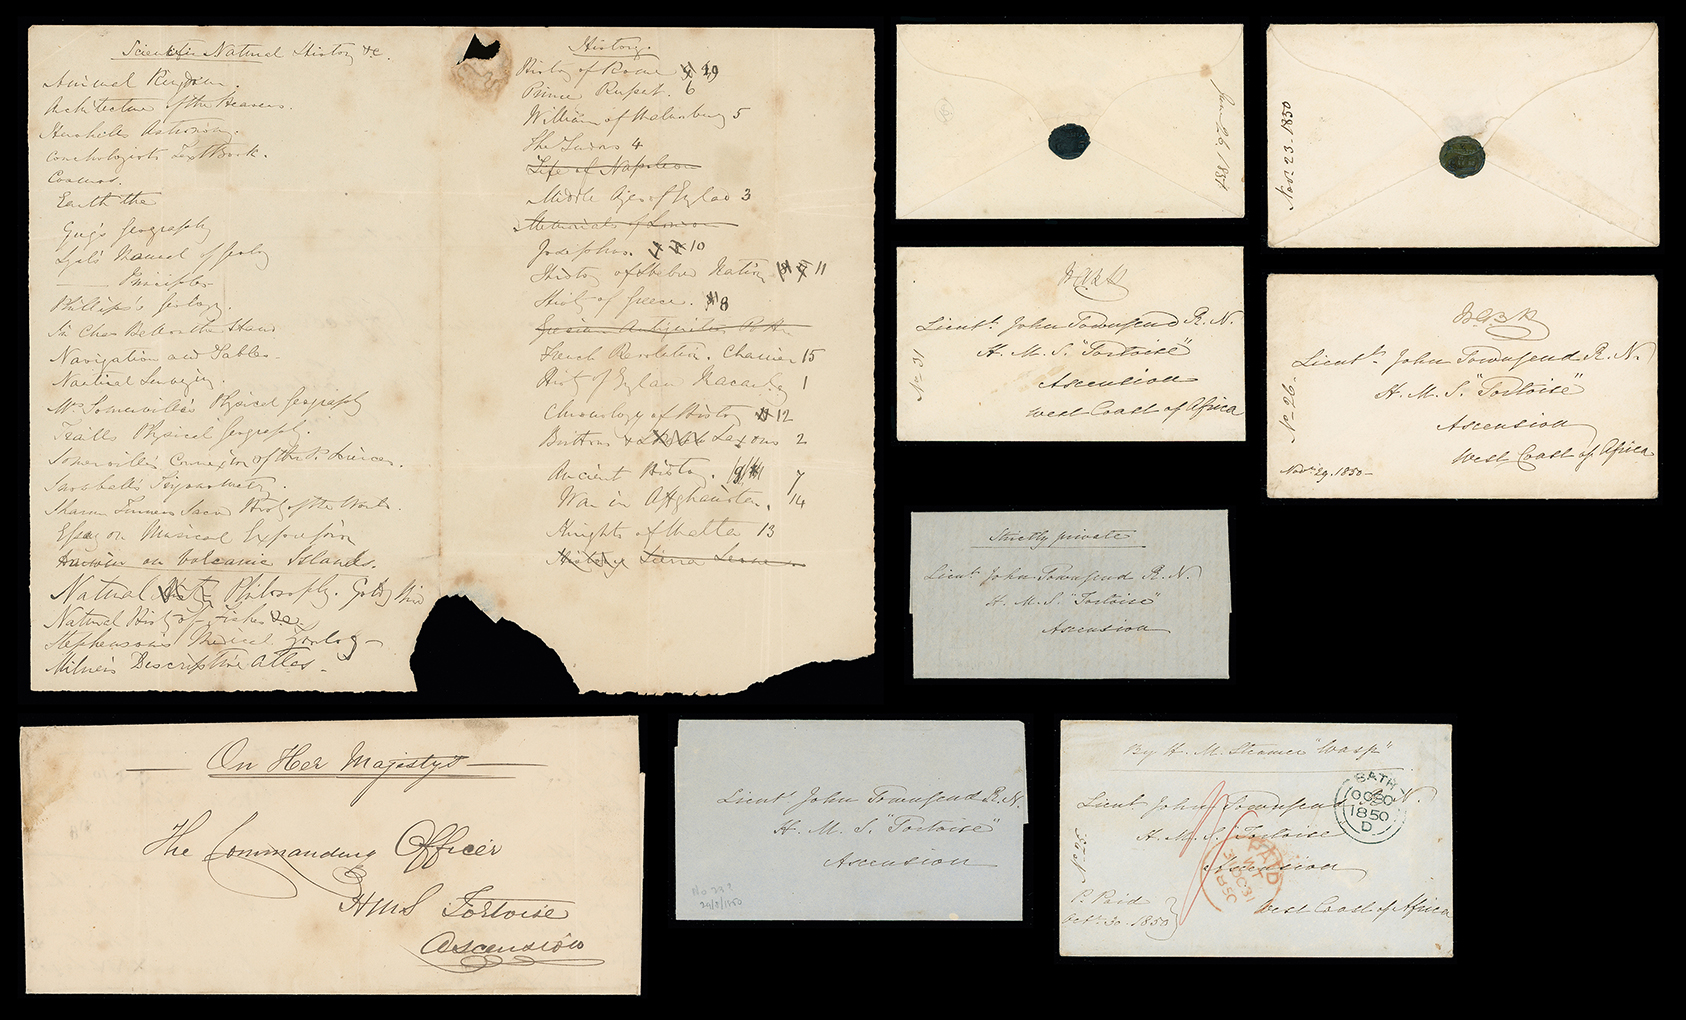 Scientific Natural History &c.
Animal Kingdom.
Architecture of the Heavens.
Herschills Astronomy.
Conchologists Text Book.
Cosmos.
Earth the
Guy's Geography
Lyel's Manual of Geolog
—— Principles
Phillips's Geology.
Sir Chas Bell on the Hand
Navigation and Tables.
Nautical Surveying.
Mrs Somerville's Physical Geography
Traills Physical Geograph.
Somerville's Connexion of the P. Sciences.
Sharon Turners Sacred Hist of the World.
Essay on Musical Expression
Darwin on Volcanic Islands.
Natural Philosophy.
Natural Hist of Fishes &c
Stephenson's Medical Zoolog
Milner's Descriptive Atlas
History.
History of Rome 9
Prince Rupert. 6
William of Malmsbury 5
The Tudors 4
Life of Napoleon
Middle Ages of England 3
Memorials of London
Josephus. 10
History of Hebrew Nation 11
Hist of Greece. 8
Grecian Antiquities
French Revolution. 15
Hist of England Macaulay 1
Chronology of History 12
Brittons & Saxons 2
Ancient History. 7
War in Affghanistan. 14
Knights of Malta 13
History Sierra Leone
June 26. 1851
Novr 23. 1850
Lieut. John Townsend R.N.
H.M.S. "Tortoise"
Ascension
West Coast of Africa
No 31
Lieut. John Townsend R.N.
H.M.S. "Tortoise"
Ascension
West Coast of Africa
No 26.
Novr 29. 1850
Strictly private
Lieut. John Townsend R.N.
H.M.S. "Tortoise"
Ascension
On Her Majesty's
The Commanding Officer
HMS Tortoise
Ascension
Lieut. John Townsend R.N.
H.M.S. "Tortoise"
Ascension
By H. M. Steamer "Wasp"
Lieut John Townsend R.N.
H.M.S. "Tortoise
Ascension
West Coast of Africa
P. Paid
Octr 30. 1850
BATH
OC 30
1850
D
PAID
OC 31
1850